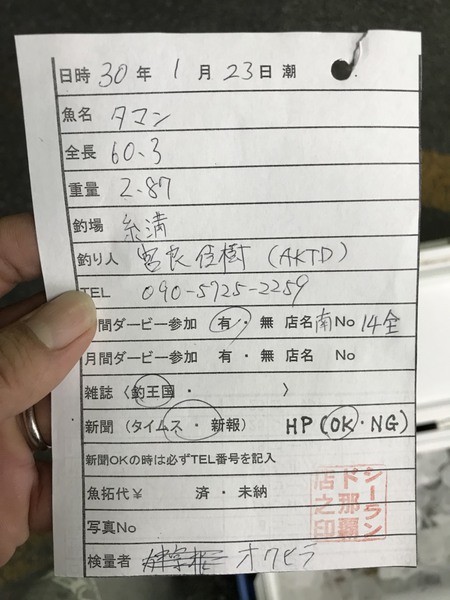 日時 30 年 1 月 23 日 潮
魚名 タマン
全長 60.3
重量 2.87
釣場 糸満
釣り人 宮良佳樹 (AKTD)
TEL 090-5725-2259
間ダービー参加 有・無 店名 南 No 14全
月間ダービー参加 有・無 店名 No
雑誌〈釣王国・ 〉
新聞(タイムス・新報) HP(OK・NG)
新聞OKの時は必ずTEL番号を記入
魚拓代¥ 済・未納
写真No
検量者 オクヒラ
シーランド那覇店之印